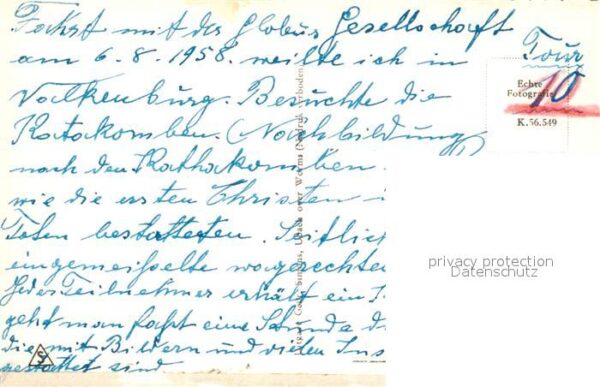 Fahrt mit der Globus Gesellschaft
am 6.8.1958. weilte ich in
Tour
Valkenburg. Besuchte die
Katakomben. (Nachbildung)
nach den Kathakomben
wie die ersten Christen
Toten bestatteten. Seitlich
eingemeisselte wagerechte
Jeder Teilnehmer erhält ein
geht man fast eine Stunde d
die mit Bildern und vielen Ins
gestattet sind
Echte
Fotografie
10
K.56.549
Simons, Ubach over Worms (Nadruk verboden)
privacy protection
Datenschutz